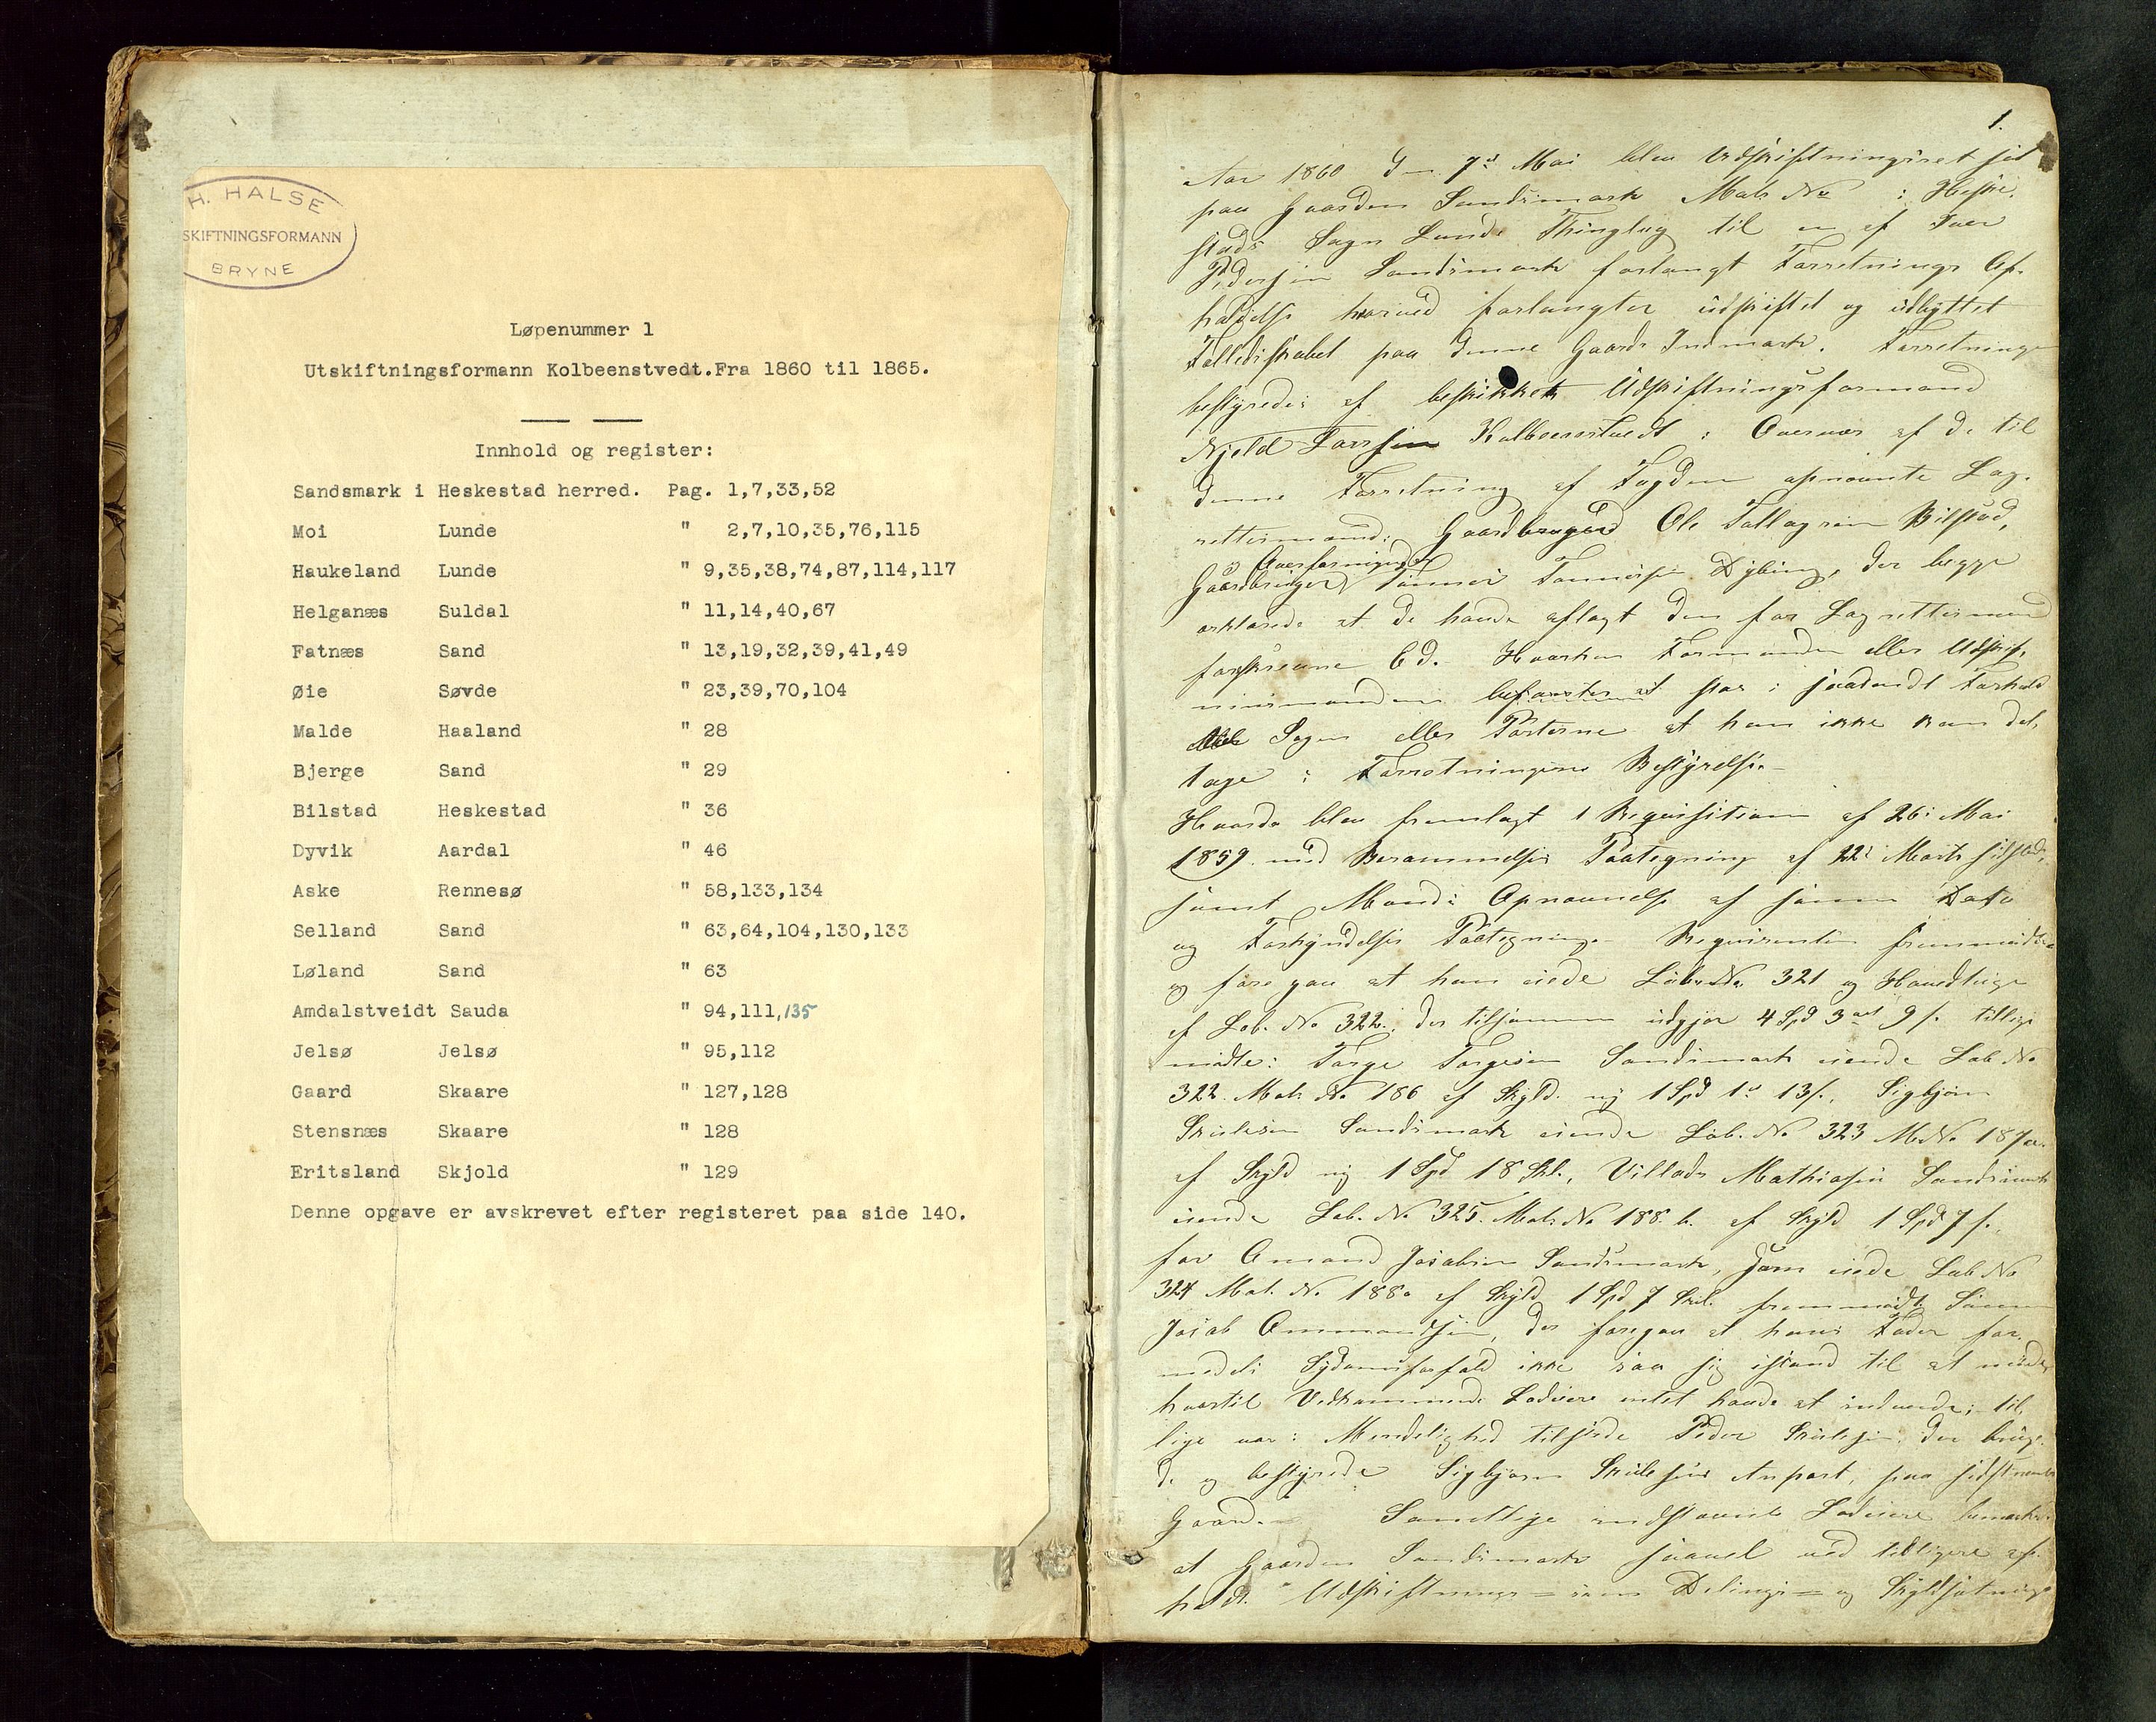 H. HALSE
SKIFTNINGSFORMANN
BRYNE
Løpenummer 1
Utskiftningsformann Kolbeenstvedt.Fra 1860 til 1865.
Innhold og register:
Sandsmark i Heskestad herred. Pag. 1,7,33,52
Moi Lunde " 2,7,10,35,76,115
Haukeland Lunde " 9,35,38,74,87,114,117
Helganæs Suldal " 11,14,40,67
Fatnæs Sand " 13,19,32,39,41,49
Øie Søvde " 23,39,70,104
Malde Haaland " 28
Bjerge Sand " 29
Bilstad Heskestad " 36
Dyvik Aardal " 46
Aske Rennesø " 58,133,134
Selland Sand " 63,64,104,130,133
Løland Sand " 63
Amdalstveidt Sauda " 94,111,135
Jelsø Jelsø " 95,112
Gaard Skaare " 127,128
Stensnæs Skaare " 128
Eritsland Skjold " 129
Denne opgave er avskrevet efter registeret paa side 140.
1.
Aar 1860 den 7de Mai blev Udskiftningsret sat
paa Gaarden Sandsmark Matr No i Heske-
stads Sogn Lunde Thinglag til en af Iver
Pedersen Sandsmark forlangt Forretnings Af-
holdelse hvorved forlangtes udskiftet og udbyttet
Fælledskabet paa denne Gaards Indmark. Forretningen
bestyredes af beskikket Udskiftningsformand
Njeld Larssen Kolbeenstvedt i Overvær af de til
denne Forretning af Fogden opnævnte Lag-
rettesmænd: Gaardbruger Ole Tollagsen Bilstad,
Gaardbruger Tønnes Tønnesen Dybing, der begge
erklærede at de havde aflagt den for Lagrettesmænd
forskrevne Ed. Hverken Formanden eller Udskift-
ningsmændene befandtes at staa i saadant Forhold
til Sagen eller Parterne at han ikke kan del-
tage i Forretningens Bestyrelse.
Hvorda blev fremlagt 1 Requisition af 26de Mai
1859 med Berammelses Paategning af 22de Marts sidstl.
samt Mænds Opnævnelse af samme Dato
og Forkyndelses Paategning. Requirenten fremmødte
og foregav at han eiede Løb No 321 og Hovedlige
af Løb. No 322, der tilsammen udgjør 4 Spd 3 ort 9 s. tillige
mødte: Torge Torgesen Sandsmark eiende Løb. No
322. Matr No 186 af Skyld ny 1 Spd 1 o 13 s., Sigbjørn
Skulesen Sandsmark eiende Løb. No 323 M. No 187a.
af Skyld ny 1 Spd 18 Sk., Villads Mathiasen Sandsmark
eiende Løb. No 325. Matr No 188 b. af Skyld 1 Spd 7 s.
for Omund Jacobsen Sandsmark, som eiede Løb No
324 Mat. No 188a af Skyld 1 Spd 7 Skl. fremmødte Sønnen
Jacob Ommundsen, der foregav at hans Fader for-
medels Sygdomsforfald ikke saa sig istand til at møde
hvortil Vedkommende Lodeiere intet havde at indvende; til-
lige var i Mindelighed tilstede Peder Skulesen, der bruge-
de og bestyrede Sigbjørn Skulesens Anpart paa sidstnævnte
Gaard. Samtlige indstævnte Lodeiere bemærkede
at Gaarden Sandsmark saavel ved tidligere af-
holdt Udskiftnings- som Delings- og Skyldsætnings